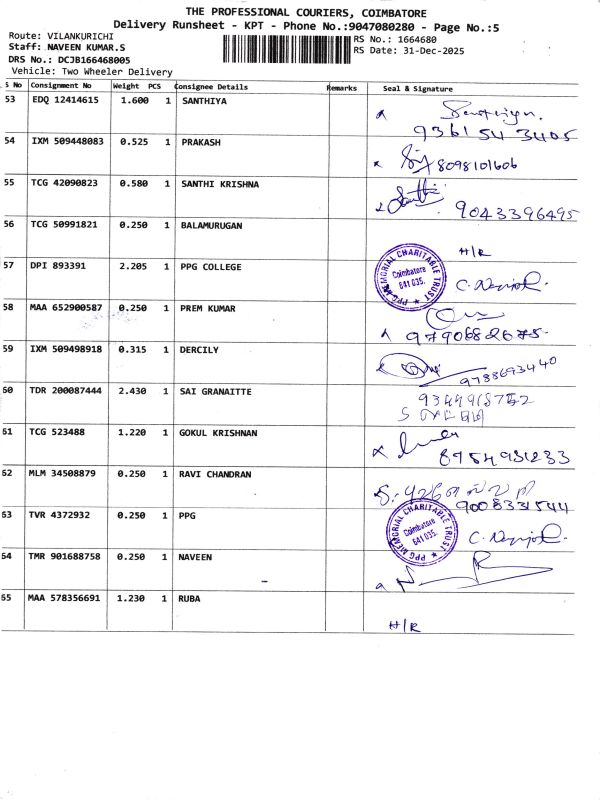 THE PROFESSIONAL COURIERS, COIMBATORE
Delivery Runsheet - KPT - Phone No.:9047080280 - Page No.:5
Route: VILANKURICHI
RS No.: 1664680
Staff: NAVEEN KUMAR.S
RS Date: 31-Dec-2025
DRS No.: DCJB166468005
Vehicle: Two Wheeler Delivery
S No Consignment No Weight PCS Consignee Details Remarks Seal & Signature
53 EDQ 12414615 1.600 1 SANTHIYA
9361543405
54 IXM 509448083 0.525 1 PRAKASH
8098101606
55 TCG 42090823 0.580 1 SANTHI KRISHNA
9043396495
56 TCG 50991821 0.250 1 BALAMURUGAN
H/R
57 DPI 893391 2.205 1 PPG COLLEGE
PPG MEMORIAL CHARITABLE TRUST
Coimbatore
641 035.
58 MAA 652900587 0.250 1 PREM KUMAR
9790682675
59 IXM 509498918 0.315 1 DERCILY
9788693440
60 TDR 200087444 2.430 1 SAI GRANAITTE
61 TCG 523488 1.220 1 GOKUL KRISHNAN
8954931233
62 MLM 34508879 0.250 1 RAVI CHANDRAN
9008331544
63 TVR 4372932 0.250 1 PPG
PPG MEMORIAL CHARITABLE TRUST
Coimbatore
641 035.
64 TMR 901688758 0.250 1 NAVEEN
65 MAA 578356691 1.230 1 RUBA
H/R